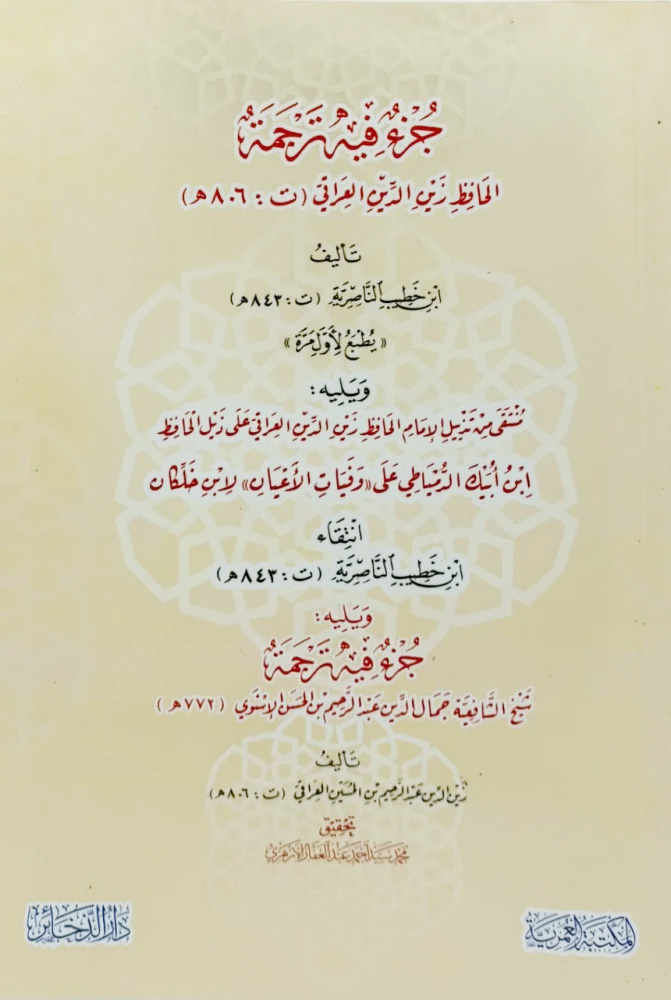 جُزْءٌ فِيهِ تَرْجَمَةُ
الحَافِظِ زَيْنِ الدِّينِ العِرَاقِيِّ (ت: ٨٠٦هـ)
تَأْلِيفُ
ابْنِ خَطِيبِ النَّاصِرِيَّةِ (ت: ٨٤٣هـ)
«يُطْبَعُ لِأَوَّلِ مَرَّة»
وَيَلِيهِ:
مُنْتَقَى مِنْ تَذْيِيلِ الإِمَامِ الحَافِظِ زَيْنِ الدِّينِ العِرَاقِيِّ عَلَى ذَيْلِ الحَافِظِ
ابْنِ أَيْبَكَ الدِّمْيَاطِي عَلَى «وَفَيَاتِ الأَعْيَانِ» لِابْنِ خَلِّكَان
انْتِقَاء
ابْنِ خَطِيبِ النَّاصِرِيَّةِ (ت: ٨٤٣هـ)
وَيَلِيهِ:
جُزْءٌ فِيهِ تَرْجَمَةُ
شَيْخِ الشَّافِعِيَّةِ جَمَالِ الدِّينِ عَبْدِ الرَّحِيمِ بْنِ الحَسَنِ الإِسْنَوِي (٧٧٢هـ)
تَأْلِيفُ
زَيْنِ الدِّينِ عَبْدِ الرَّحِيمِ بْنِ الحُسَيْنِ العِرَاقِيِّ (ت: ٨٠٦هـ)
تَحْقِيق
مُحَمَّد سَيِّد أَحْمَد عَبْد الغَفَّار الأَزْهَرِي
المكتبة العمرية
دَارُ الذَّخَائِر